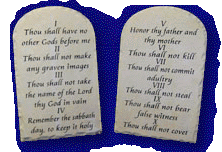 I
Thou shall have no
other Gods before me
II
Thou shall not make
any graven images
III
Thou shall not take
the name of the Lord
thy God in vain
IV
Remember the sabbath
day, to keep it holy
V
Honor thy father and
thy mother
VI
Thou shall not kill
VII
Thou shall not commit
adultery
VIII
Thou shall not steal
IX
Thou shall not bear
false witness
X
Thou shall not covet